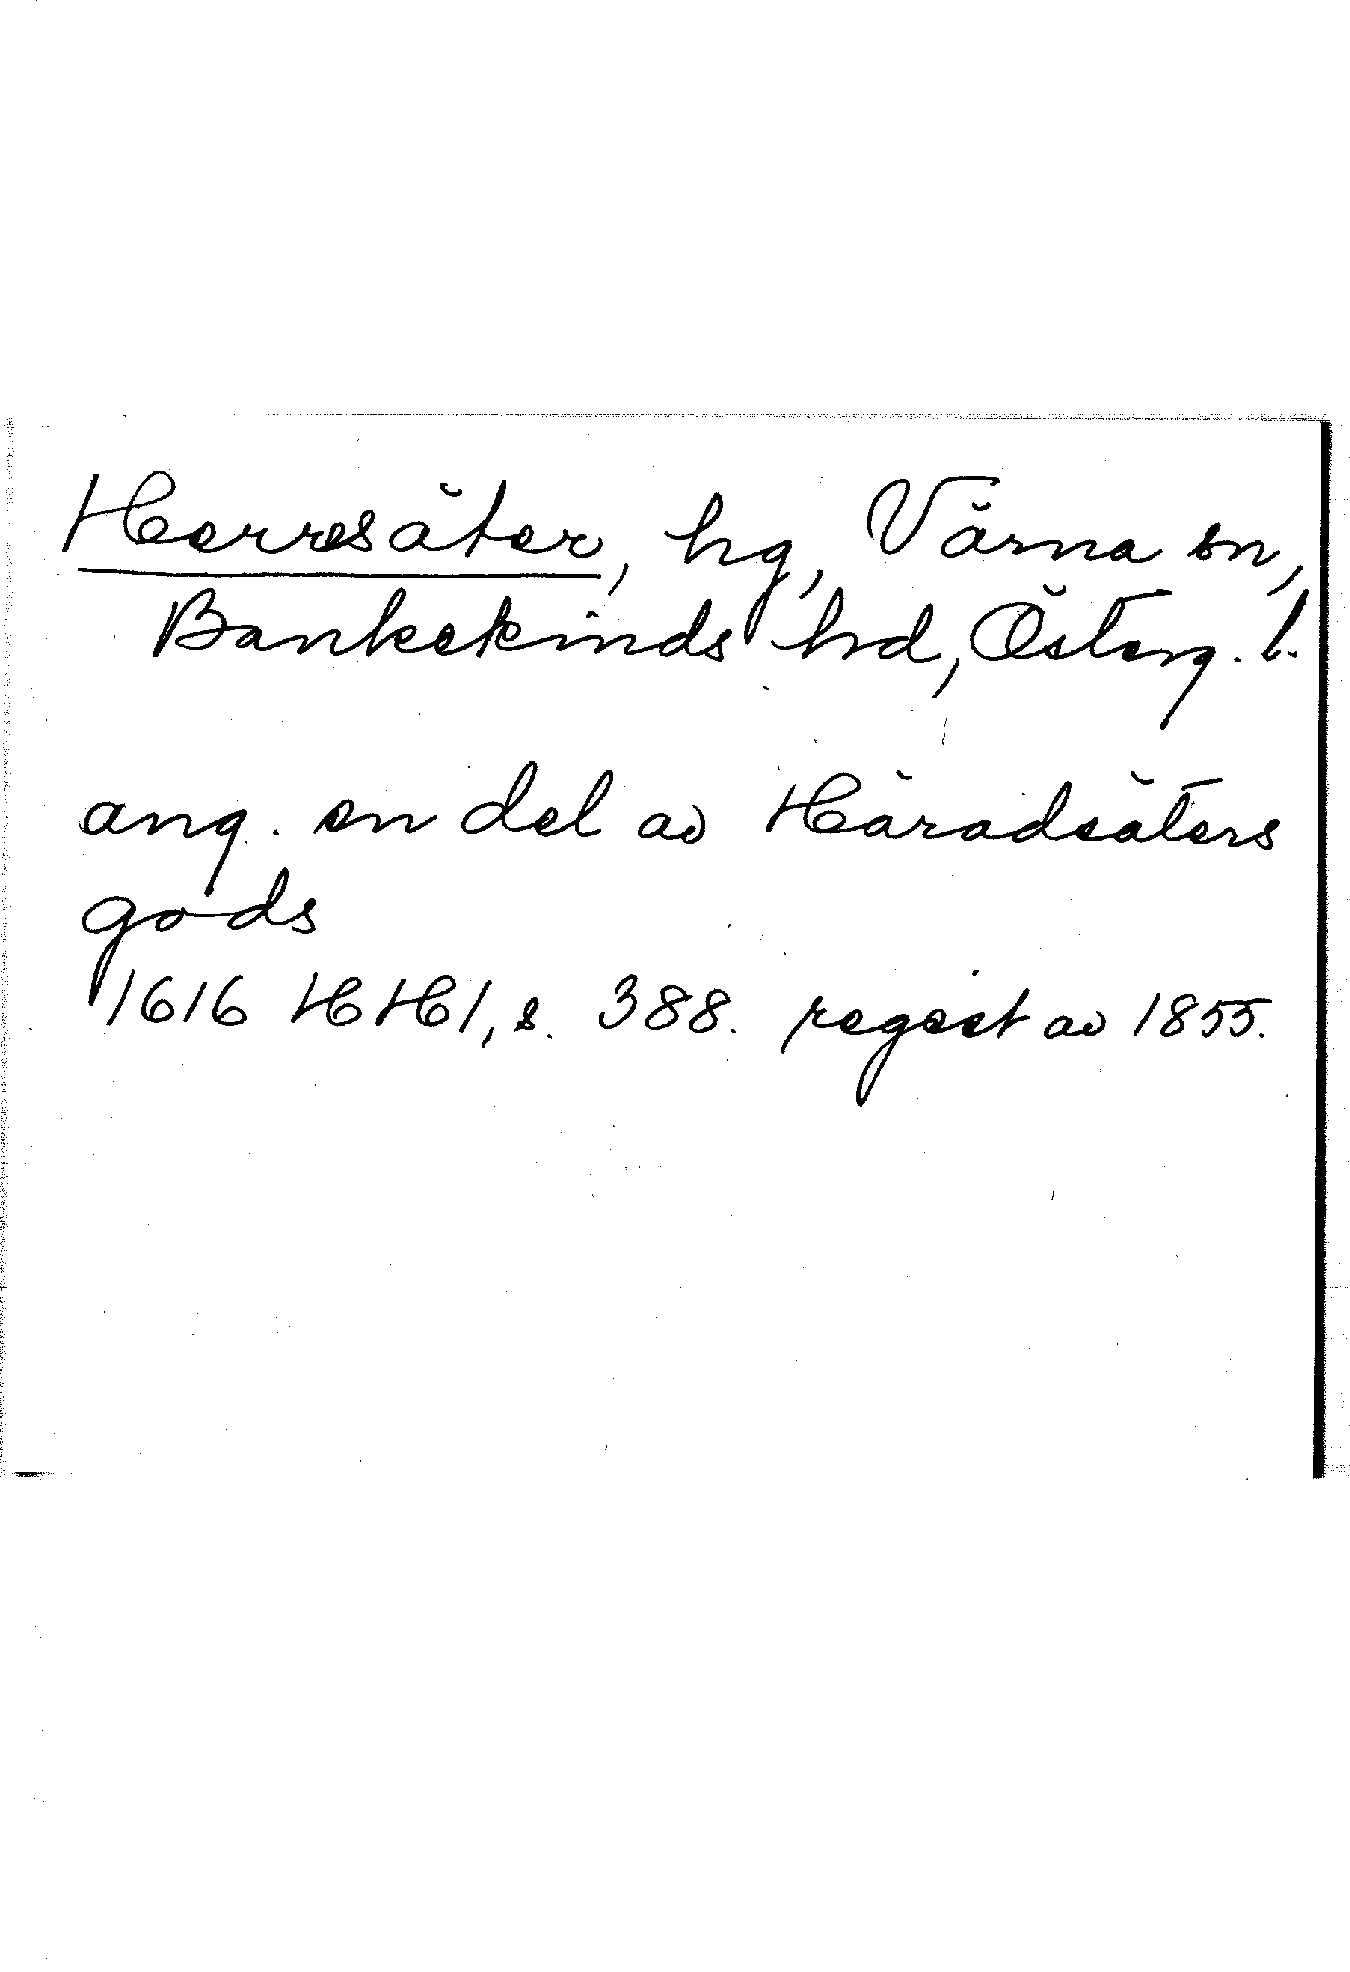 Herresäter, hg, Värna sn,
Bankekinds hd, Österg. l.
ang. en del av Häradsäters
gods
1616 HH1, s. 388. regest av 1855.